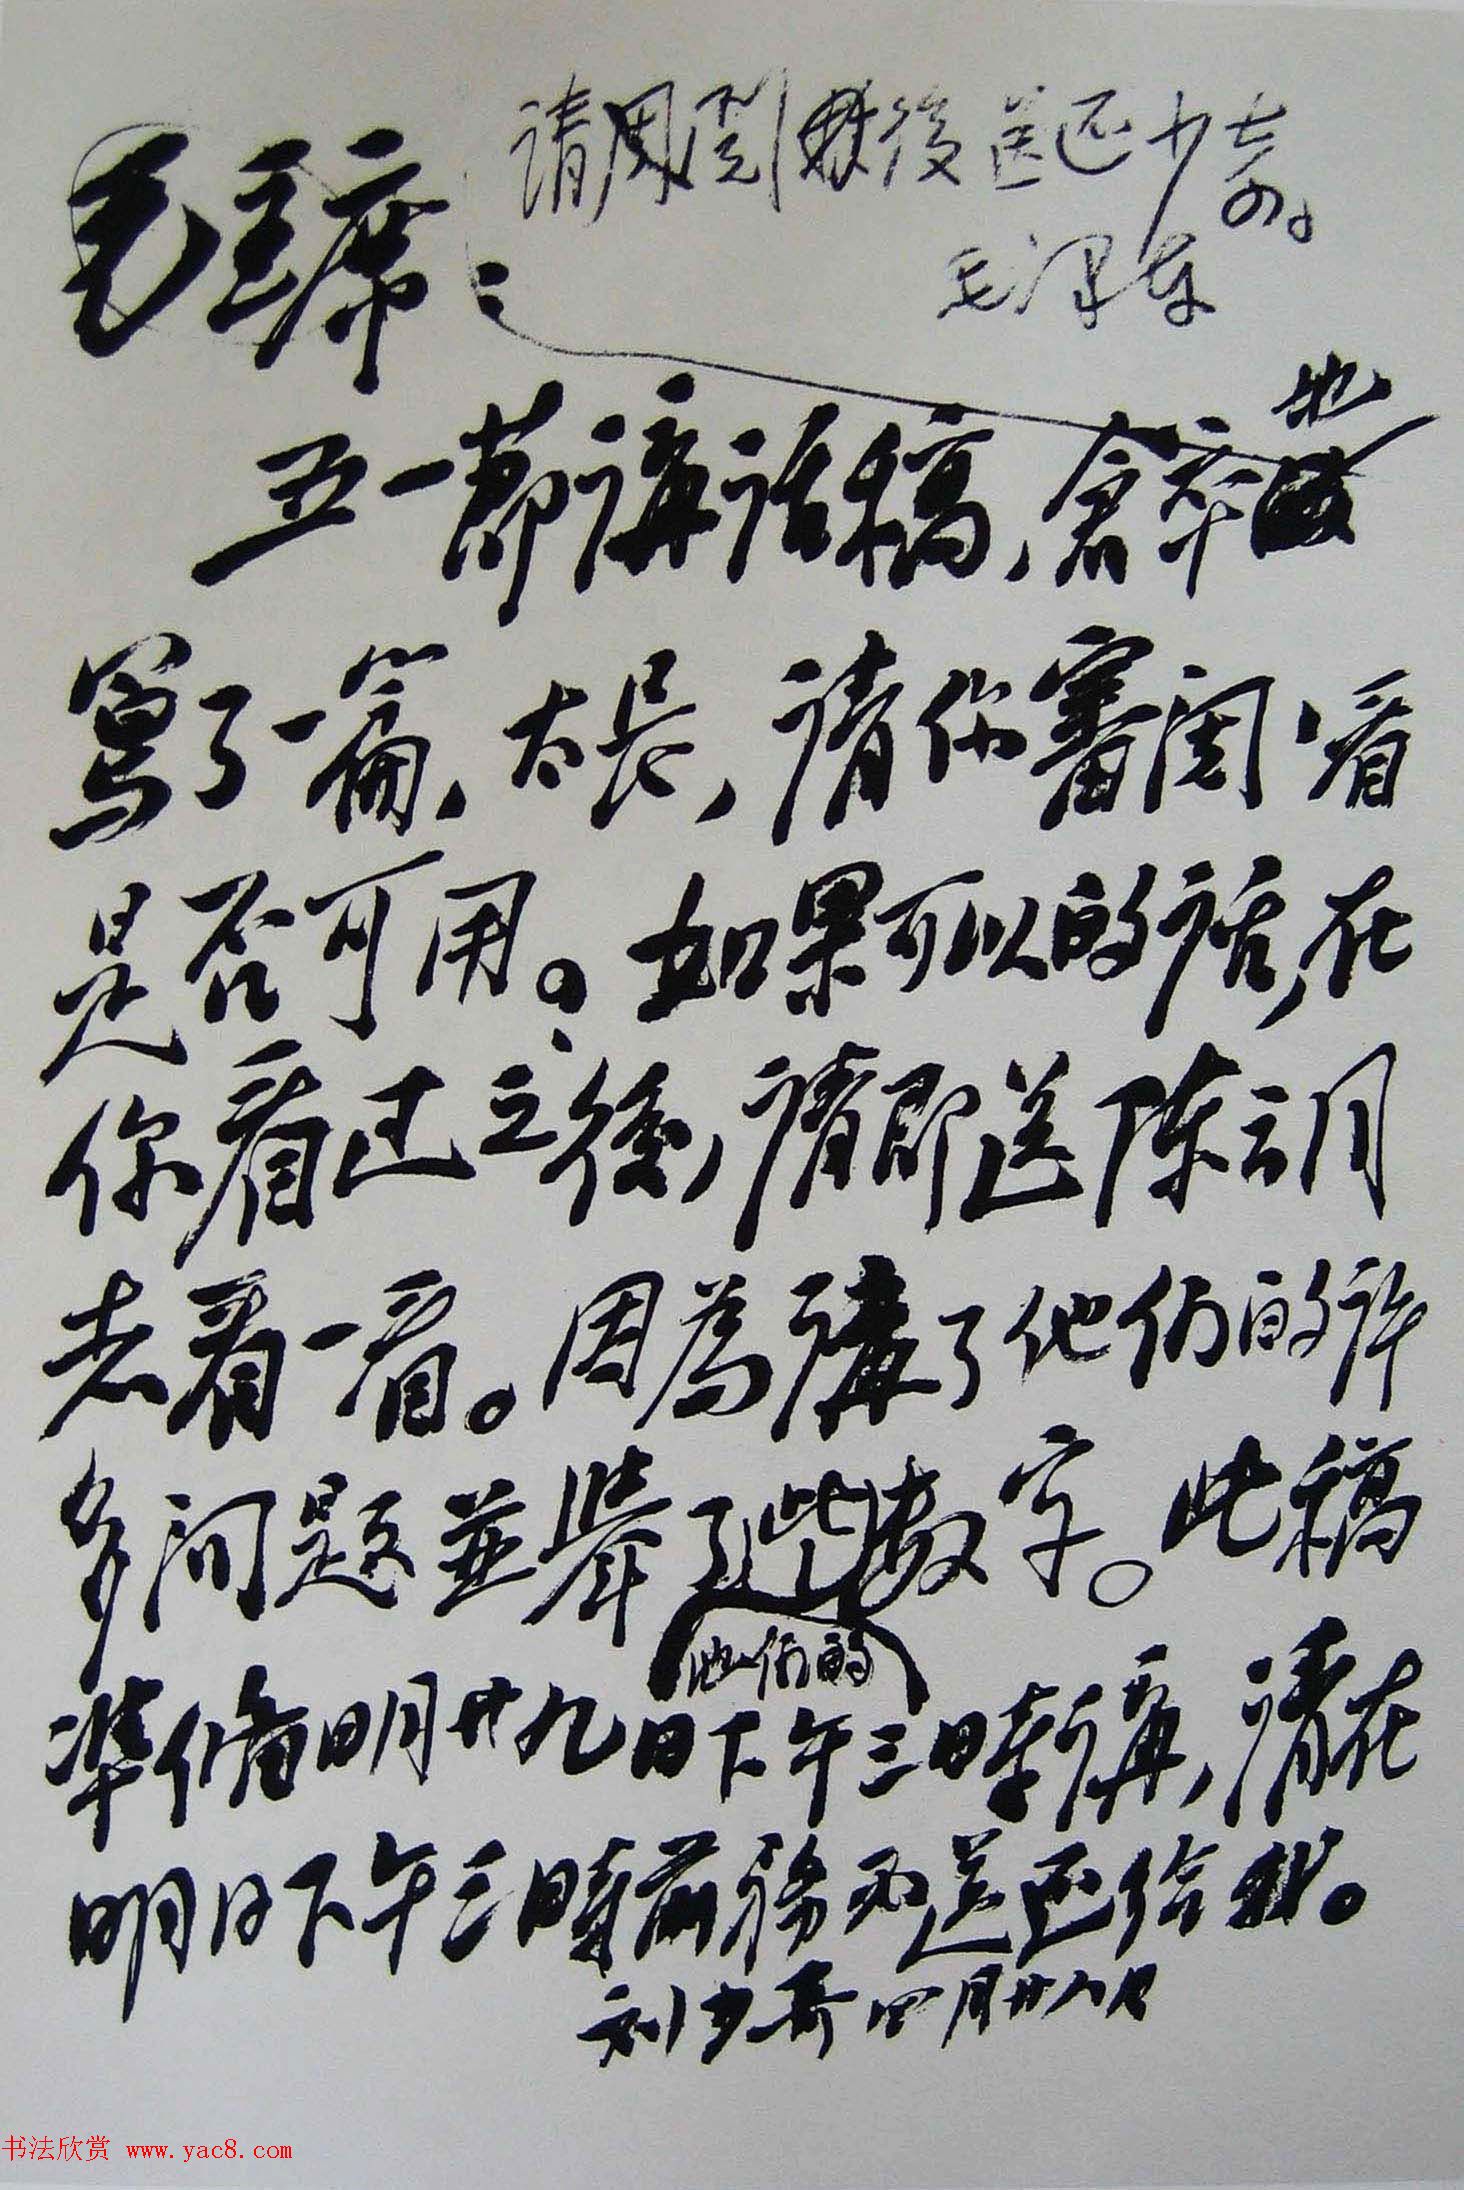 请周閱後送还少奇。
毛泽东
毛主席：
五一節講话稿，倉卒地
寫了一篇，太长，请你審閱，看
是否可用。如果可以的话，在
你看过之後，请即送陈云同
志看一看。因為講了他们的许
多问题並举了这些数字。此稿
他们的
準備明廿九日下午三時講，请在
明日下午三時前務必送还给我。
刘少奇 四月廿八日
书法欣赏 www.yac8.com